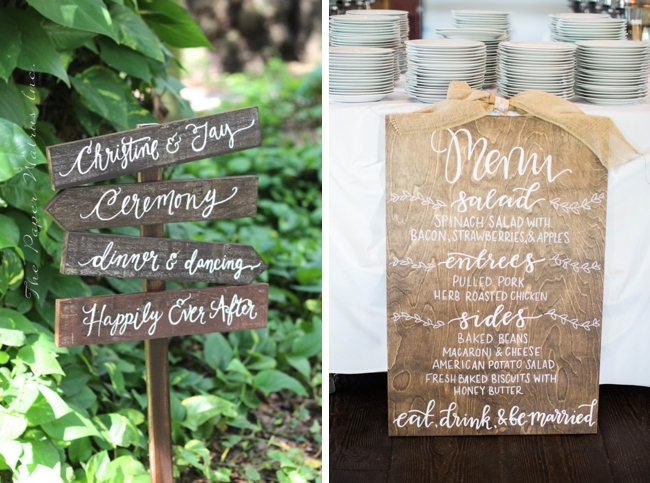 Christine & Jay
Ceremony
dinner & dancing
Happily Ever After
The Paper Walrus Inc.
Menu
salad
SPINACH SALAD WITH
BACON, STRAWBERRIES, & APPLES
entrees
PULLED PORK
HERB ROASTED CHICKEN
sides
BAKED BEANS
MACARONI & CHEESE
AMERICAN POTATO SALAD
FRESH BAKED BISCUITS WITH
HONEY BUTTER
eat, drink, & be married